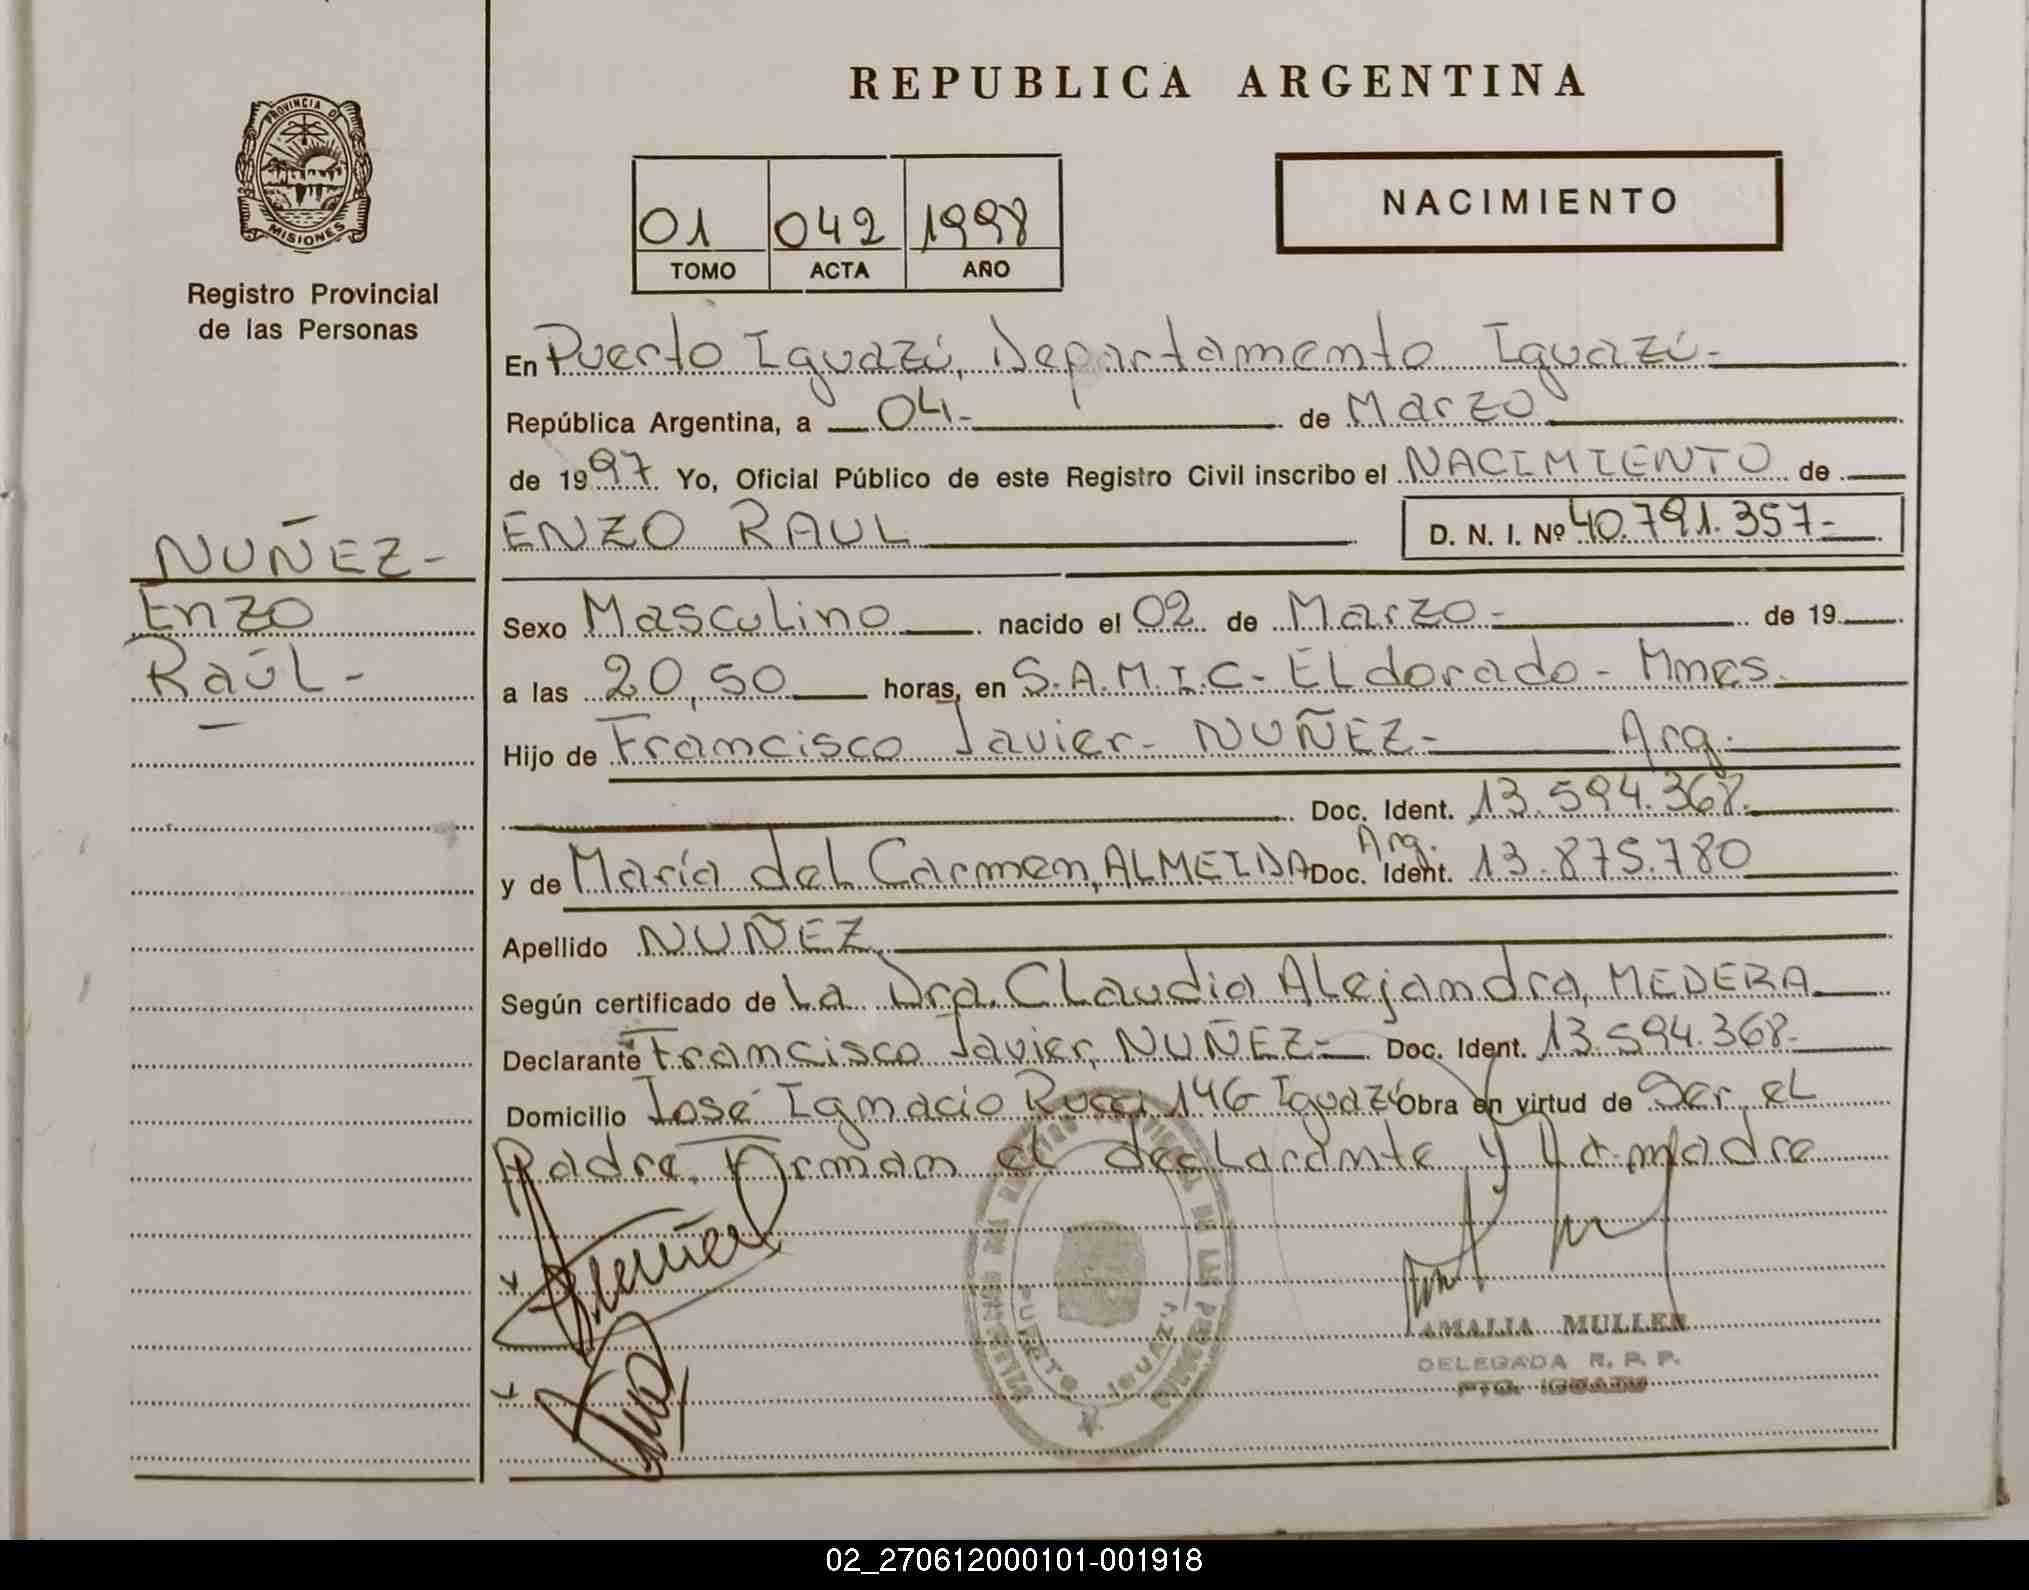 REPUBLICA ARGENTINA
PROVINCIA DE
MISIONES
Registro Provincial
de las Personas
01 042 1998
TOMO ACTA AÑO
NACIMIENTO
En Puerto Iguazú, Departamento Iguazú-
República Argentina, a 04- de Marzo
de 1997 Yo, Oficial Público de este Registro Civil inscribo el NACIMIENTO de
ENZO RAUL D. N. I. Nº 40.791.357-
NUÑEZ-
Enzo
Raúl-
Sexo Masculino nacido el 02 de Marzo- de 19
a las 20,50 horas, en S.A.M.I.C- Eldorado- Mnes.
Hijo de Francisco Javier- NUÑEZ- Arg.
Doc. Ident. 13.594.368.
y de María del Carmen, ALMEIDA Arg. Doc. Ident. 13.875.780
Apellido NUÑEZ
Según certificado de La Dra. Claudia Alejandra, MEDERA
Declarante Francisco Javier, NUÑEZ- Doc. Ident. 13.594.368-
Domicilio José Ignacio Rucci 146 Iguazú Obra en virtud de Ser el
Padre. Firman el declarante y la madre
PUERTO IGUAZU
AMALIA MULLER
DELEGADA R. P. P.
PTO. IGUAZU
02_270612000101-001918